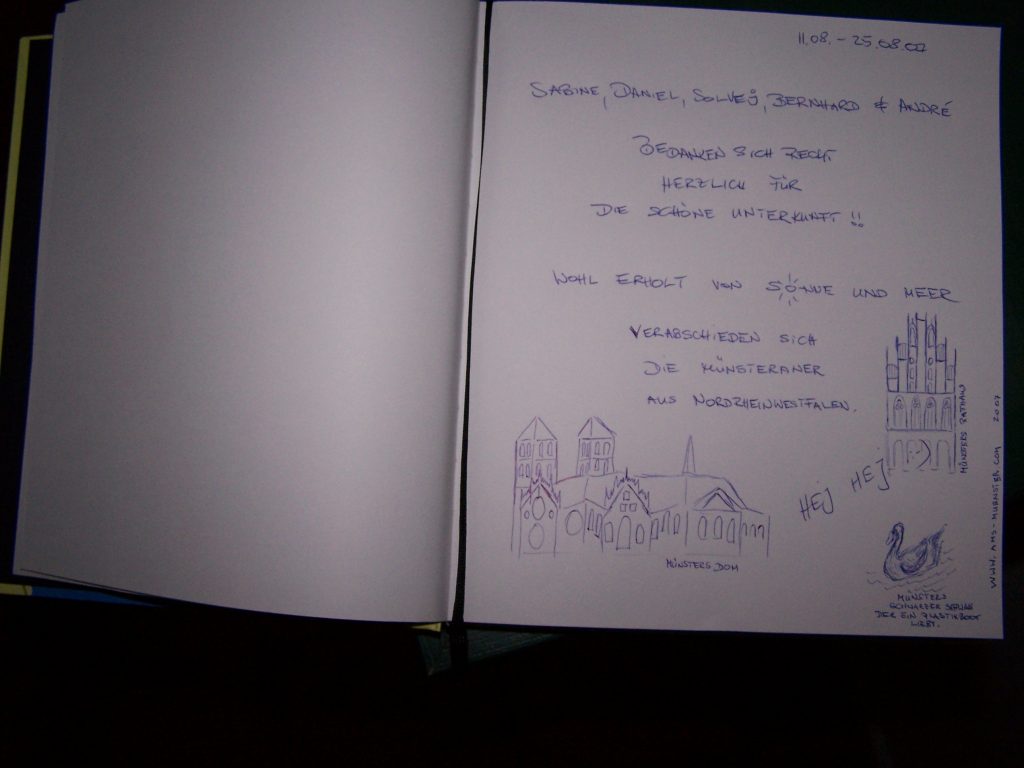 11.08. – 25.08.07
SABINE, DANIEL, SOLVEJ, BERNHARD & ANDRÉ
BEDANKEN SICH RECHT
HERZLICH FÜR
DIE SCHÖNE UNTERKUNFT !!
WOHL ERHOLT VON SONNE UND MEER
VERABSCHIEDEN SICH
DIE MÜNSTERANER
AUS NORDRHEINWESTFALEN.
MÜNSTERS RATHAUS
HEJ HEJ
MÜNSTERS DOM
MÜNSTERS
SCHWARZER SCHWAN
DER EIN PLASTIKBOOT
LIEBT.
WWW.AMS-MUENSTER.COM 2007